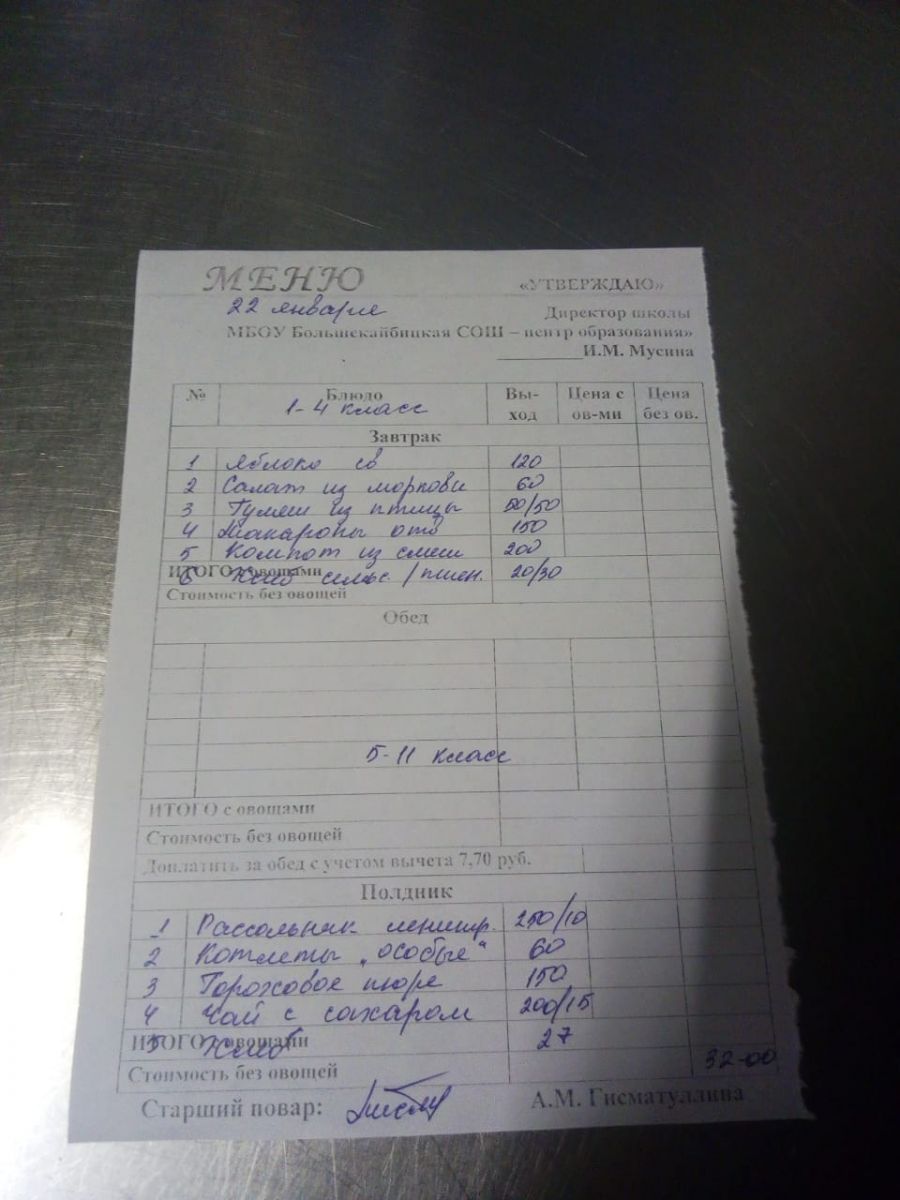 МЕНЮ «УТВЕРЖДАЮ»
22 января Директор школы
МБОУ Большекайбицкая СОШ – центр образования»
И.М. Мусина
№ Блюдо Вы-ход Цена с ов-ми Цена без ов.
1-4 класс
Завтрак
1 Яблоко св 120
2 Салат из моркови 60
3 Гуляш из птицы 50/50
4 Макароны отв 150
5 Компот из смеш 200
ИТОГО с овощами
6 Хлеб сельс. /пшен. 20/30
Стоимость без овощей
Обед
5-11 класс
ИТОГО с овощами
Стоимость без овощей
Доплатить за обед с учетом вычета 7,70 руб.
Полдник
1 Рассольник ленингр. 250/10
2 Котлеты „особые“ 60
3 Гороховое пюре 150
4 Чай с сахаром 200/15
ИТОГО с овощами
5 Хлеб 27
32-00
Стоимость без овощей
Старший повар: А.М. Гисматуллина